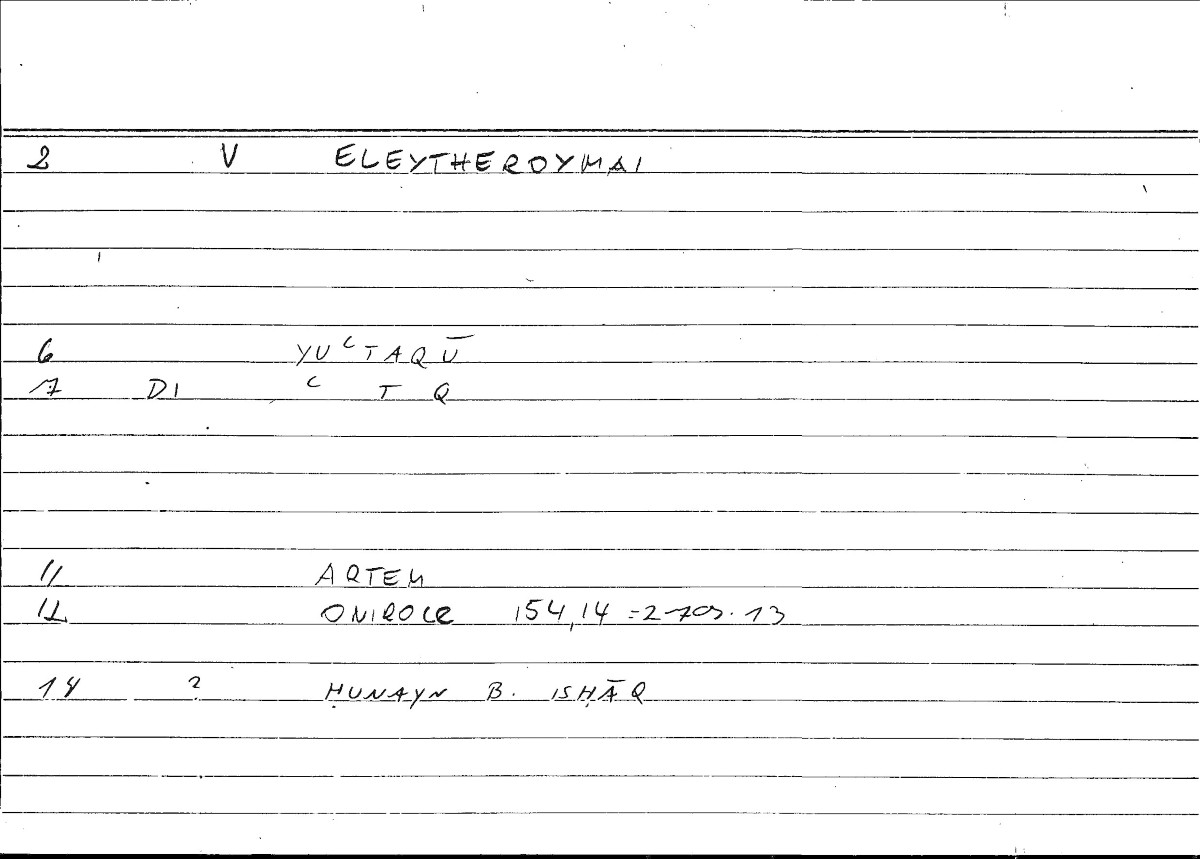 2 V ELEYTHEROYMAI
6 YUʿTAQŪ
7 DI ʿ T Q
11 ARTEM
12 ONIROCR 154,14 = 270,13
14 ? ḤUNAYN B. ISḤĀQ